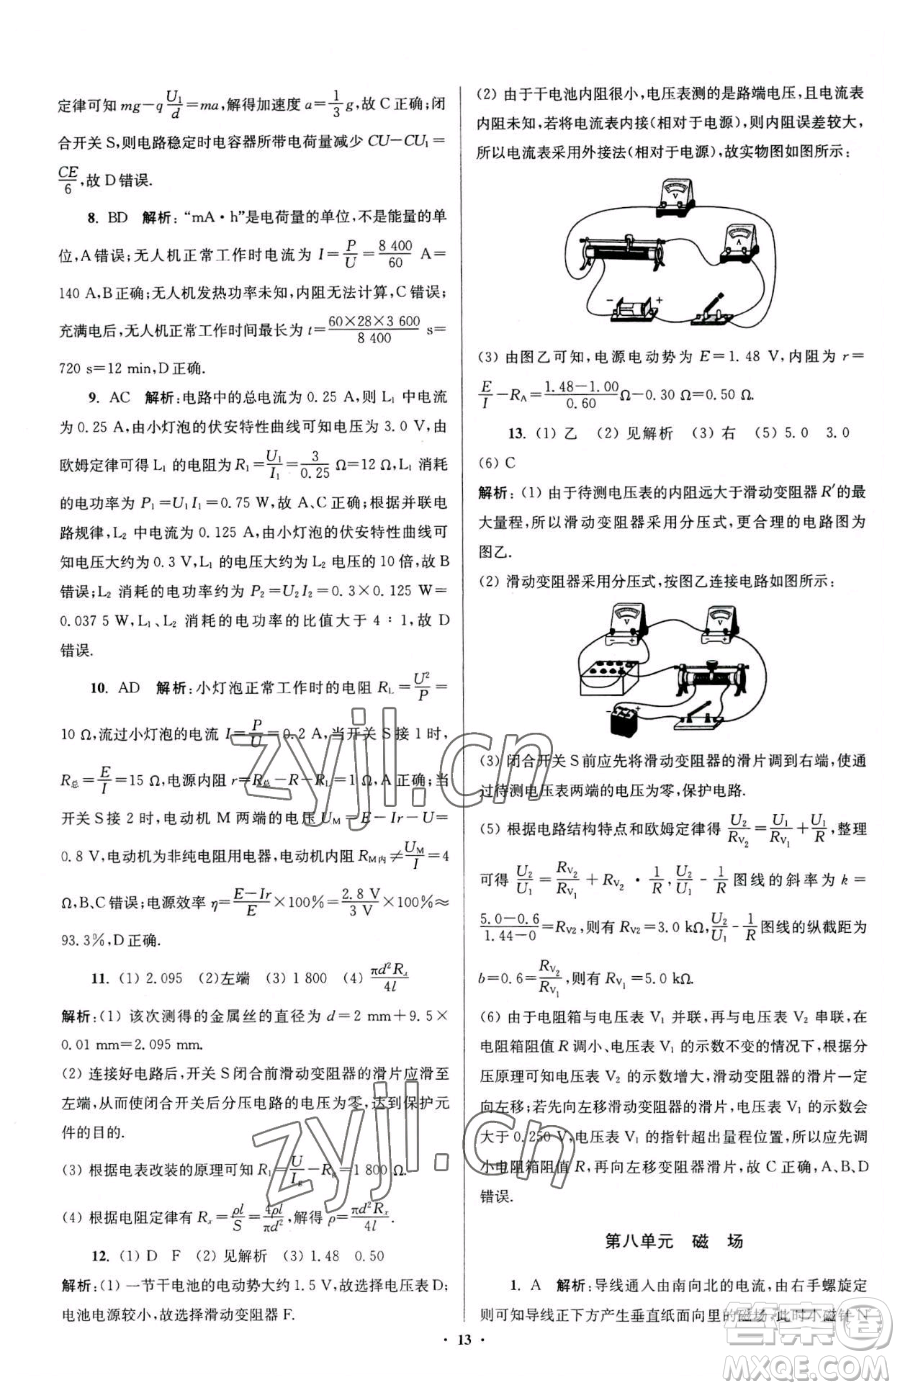 定律可知 mg−q U₁/d=ma,解得加速度 a=1/3 g,故 C 正确;闭
合开关 S,则电路稳定时电容器所带电荷量减少 CU−CU₁=
CE/6,故 D 错误.
8. BD 解析:“mA·h”是电荷量的单位,不是能量的单
位,A 错误;无人机正常工作时电流为 I=P/U=8 400/60 A=
140 A,B 正确;无人机发热功率未知,内阻无法计算,C 错误;
充满电后,无人机正常工作时间最大为 t=60×28×3 600/8 400 s=
720 s=12 min,D 正确.
9. AC 解析:电路中的总电流为 0.25 A,则 L₁ 中电流
为 0.25 A,由小灯泡的伏安特性曲线可知电压为 3.0 V,由
欧姆定律可得 L₁ 的电阻为 R₁=U₁/I₁=3/0.25 Ω=12 Ω,L₁ 消耗
的电功率为 P₁=U₁I₁=0.75 W,故 A、C 正确;根据并联电
路规律,L₂ 中电流为 0.125 A,由小灯泡的伏安特性曲线可
知电压大约为 0.3 V,L₁ 的电压大约为 L₂ 电压的 10 倍,故 B
错误;L₂ 消耗的电功率约为 P₂=U₂I₂=0.3×0.125 W=
0.037 5 W,L₁、L₂ 消耗的电功率的比值大于 4∶1,故 D
错误.
10. AD 解析:小灯泡正常工作时的电阻 R_L=U²/P=
10 Ω,流过小灯泡的电流 I=P/U=0.2 A,当开关 S 接 1 时,
R总=E/I=15 Ω,电源内阻 r=R总−R−R_L=1 Ω,A 正确;当开
关 S 接 2 时,电动机 M 两端的电压 U_M=E−Ir−U=
0.8 V,电动机为非纯电阻用电器,故电阻 R_M内≠U_M/I=4
Ω,B、C 错误;电源效率 η=(E−Ir)/E×100%=2.8 V/3 V×100%≈
93.3%,D 正确.
11. (1) 2.095 (2)左端 (3) 1 800 (4) πd²Rₓ/4l
解析:(1) 该次测得的金属丝的直径为 d=2 mm+9.5×
0.01 mm=2.095 mm.
(2) 连接好电路后,开关 S 闭合前滑动变阻器的滑片应滑至
左端,从而使闭合开关后分压电路的电压为零,可达到保护元
件的目的.
(3) 根据电表改装的原理可知 R₁=U/I_g−R_g=1 800 Ω.
(4) 根据电阻定律有 Rₓ=ρl/S=4ρl/πd²,解得 ρ=πd²Rₓ/4l.
12. (1) D F (2) 见解析 (3) 1.48 0.50
解析:(1) 一节干电池的电动势大约 1.5 V,故选择电压表 D;
电池电源较小,故选择滑动变阻器 F.
(2) 由于干电池内阻很小,电压表测的是路端电压,且电流表
内阻未知,若将电流表内接(相对于电源),则内阻误差较大,
所以电流表采用外接法(相对于电源),故实物图如图所示:
V
A
− +
(3) 由图乙可知,电源电动势为 E=1.48 V,内阻为 r=
E/I−R_A=(1.48−1.00)/0.60 Ω−0.30 Ω=0.50 Ω.
13. (1) 乙 (2) 见解析 (3) 右 (5) 5.0 3.0
(6) C
解析:(1) 由于待测电压表的内阻远大于滑动变阻器 R′的最
大量程,所以滑动变阻器采用分压式,更合理的电路图为
图乙.
(2) 滑动变阻器采用分压式,按图乙连接电路如图所示:
V V
(3) 闭合开关 S 前应先将滑动变阻器的滑片调到右端,使通
过待测电压表两端的电压为零,保护电路.
(5) 根据电路结构特点和欧姆定律得 U₂/R_V₂=U₁/R_V₁+U₁/R,整理
可得 U₂/U₁=R_V₂/R_V₁+R_V₂·1/R,U₂/U₁−1/R 图线的斜率为 k=
(5.0−0.6)/(1.44−0)=R_V2,则有 R_V2=3.0 kΩ,U₂/U₁−1/R 图线的纵截距为
b=0.6=R_V₂/R_V₁,则有 R_V₁=5.0 kΩ.
(6) 由于电阻箱与电压表 V₁ 并联,再与电压表 V₂ 串联,在
电阻箱阻值 R 调小、电压表 V₁ 的示数不变的情况下,根据分
压原理可知电压表 V₂ 的示数增大,则应向左移动变阻器的
滑片;若先向左移滑动变阻器的滑片,电压表 V₁ 的示数会
大于 0.250 V,电压表 V₁ 的指针超出量程位置,所以应先调
小电阻箱阻值 R,再向左移变阻器滑片,故 C 正确,A、B、D
错误.
第八单元 磁 场
1. A 解析:导线通入由南向北的电流,由右手螺旋定
则可知导线正下方产生垂直纸面向里的磁场,此时小磁针 N
· 13 ·
zyjl.cn
zyjl.cn
答案圈
MXQE.COM